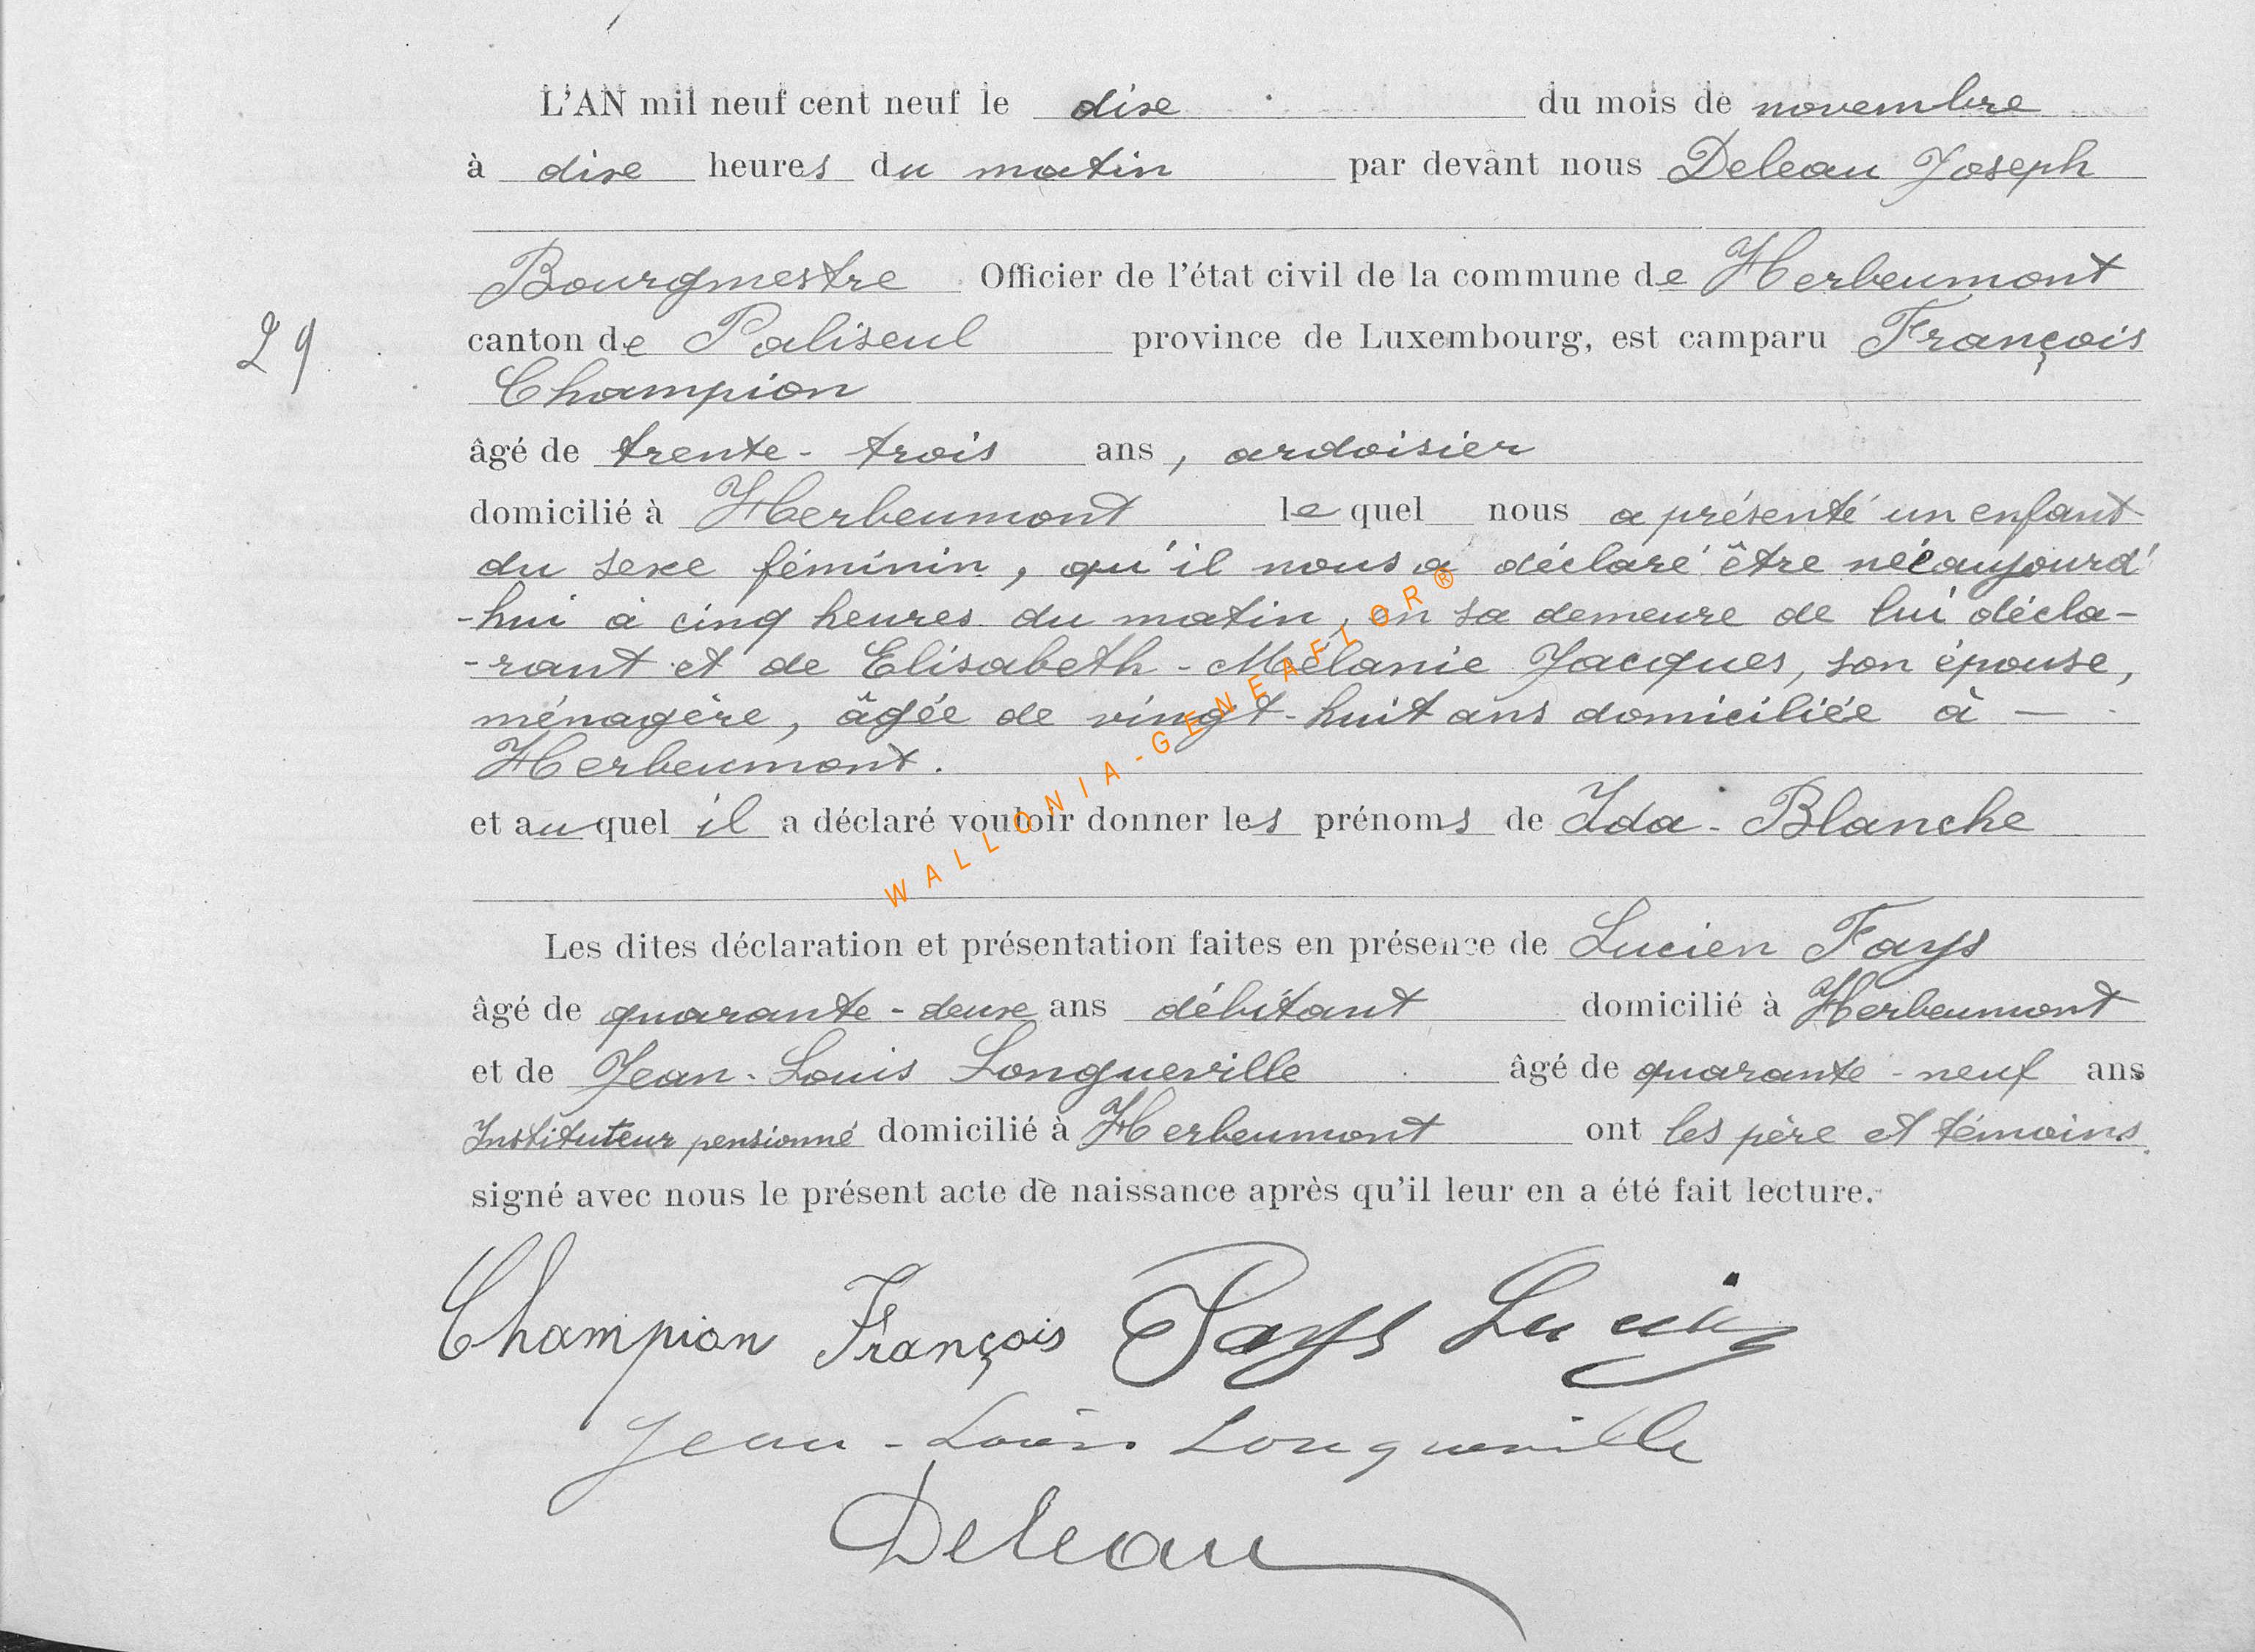 L'AN mil neuf cent neuf le dix du mois de novembre
à dix heures du matin par devant nous Deleau Joseph
Bourgmestre Officier de l'état civil de la commune de Herbeumont
29
canton de Paliseul province de Luxembourg, est camparu François
Champion
âgé de trente-trois ans, ardoisier
domicilié à Herbeumont lequel nous a présenté un enfant
du sexe féminin, qu'il nous a déclaré être née aujourd'
-hui à cinq heures du matin, en sa demeure de lui décla-
-rant et de Elisabeth-Mélanie Jacques, son épouse,
ménagère, âgée de vingt-huit ans domiciliée à —
Herbeumont.
et auquel il a déclaré vouloir donner les prénoms de Ida-Blanche
Les dites déclaration et présentation faites en présence de Lucien Fays
âgé de quarante-deux ans débitant domicilié à Herbeumont
et de Jean-Louis Longueville âgé de quarante-neuf ans
Instituteur pensionné domicilié à Herbeumont ont les père et témoins
signé avec nous le présent acte de naissance après qu'il leur en a été fait lecture.
Champion François Fays Lucien
Jean-Louis Longueville
Deleau
WALLONIA-GENEAFLOR®